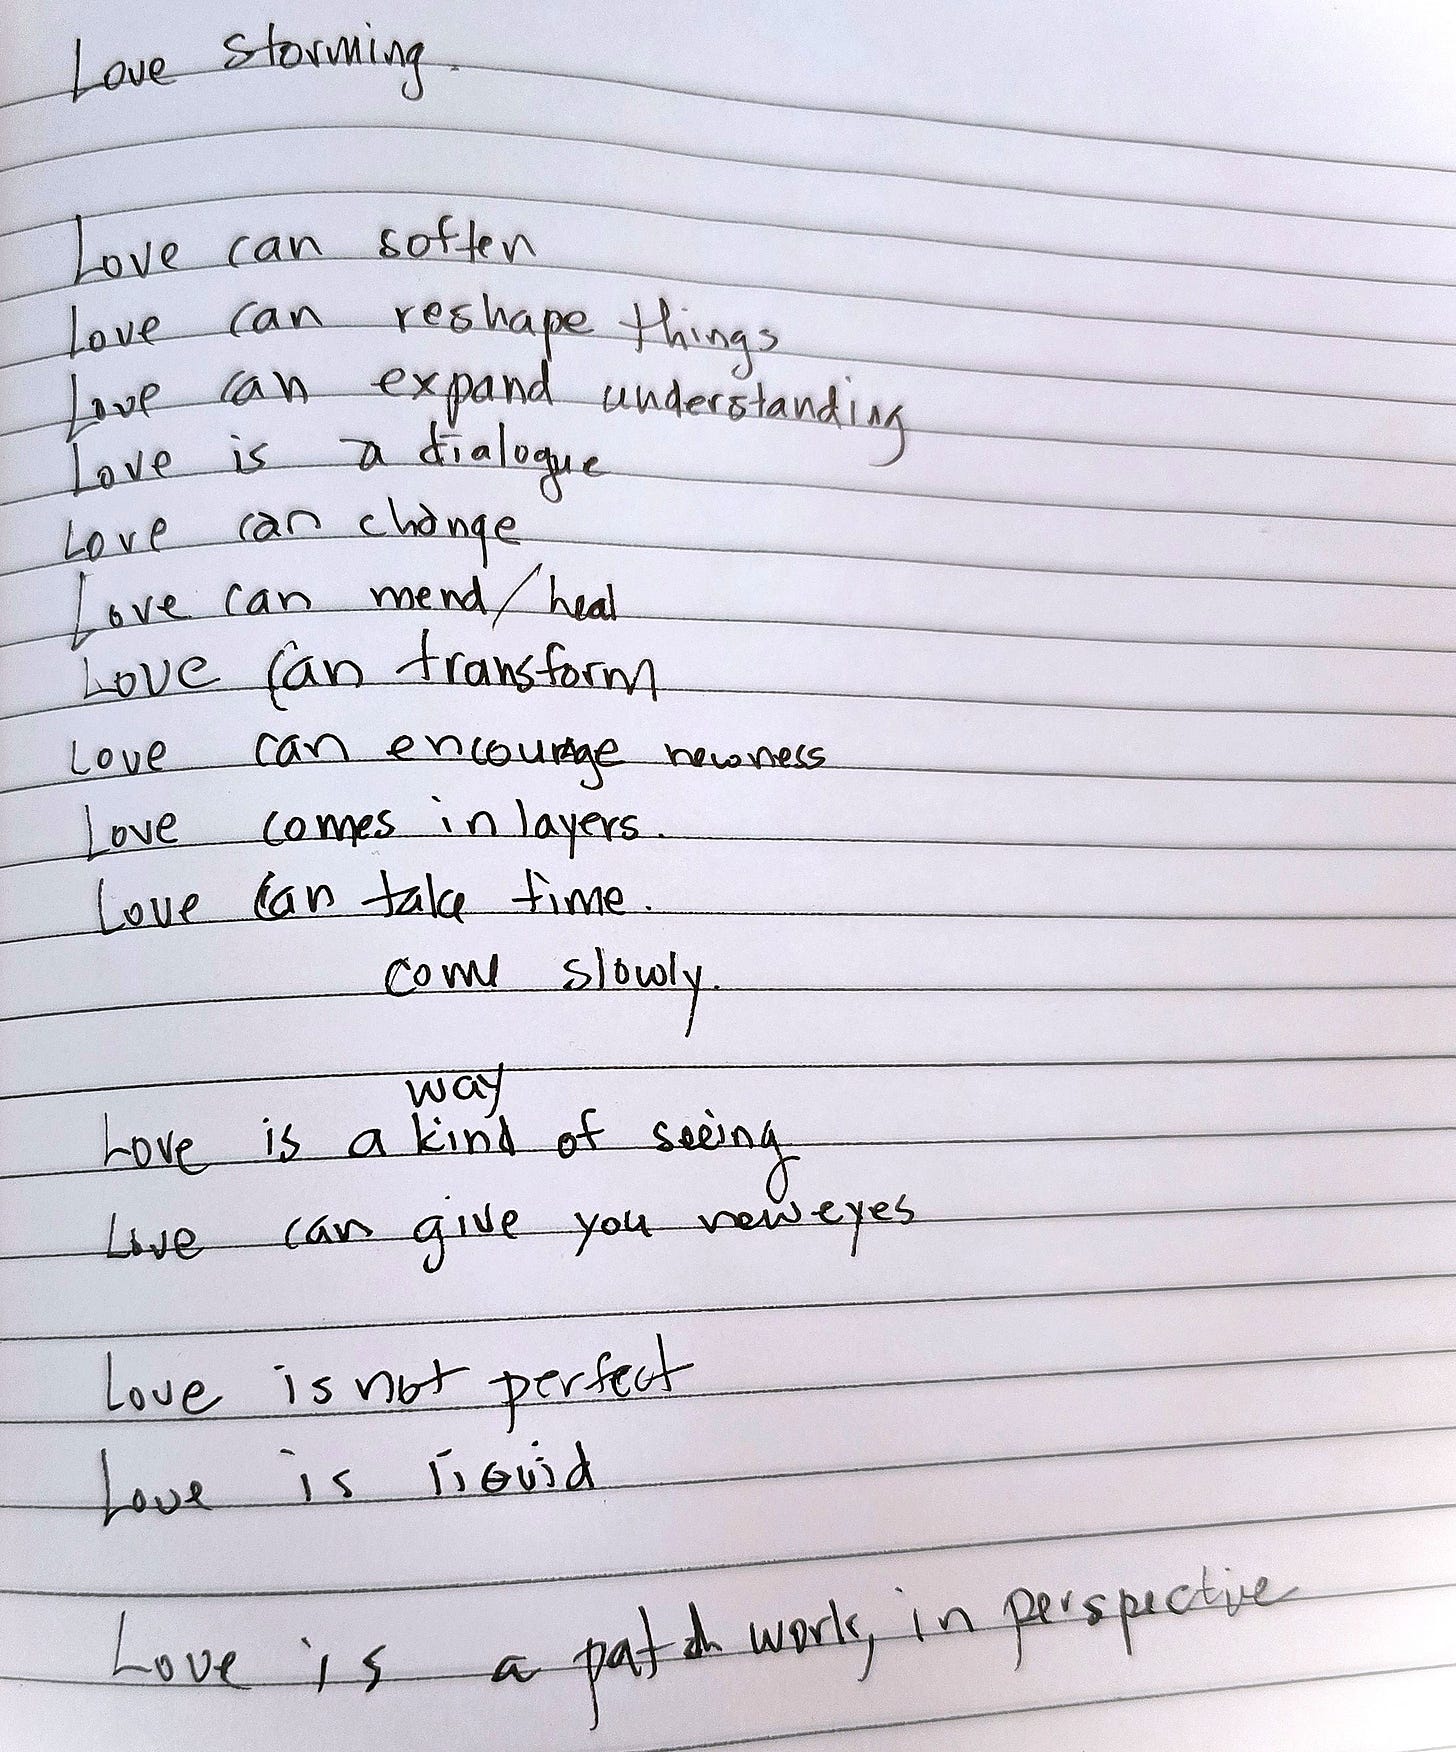 Love storming.
Love can soften
Love can reshape things
Love can expand understanding
Love is a dialogue
Love can change
Love can mend/heal
Love can transform
Love can encourage newness
Love comes in layers.
Love can take time.
come slowly.
way
Love is a kind of seeing
Love can give you new eyes
Love is not perfect
Love is liquid
Love is a patch work, in perspective